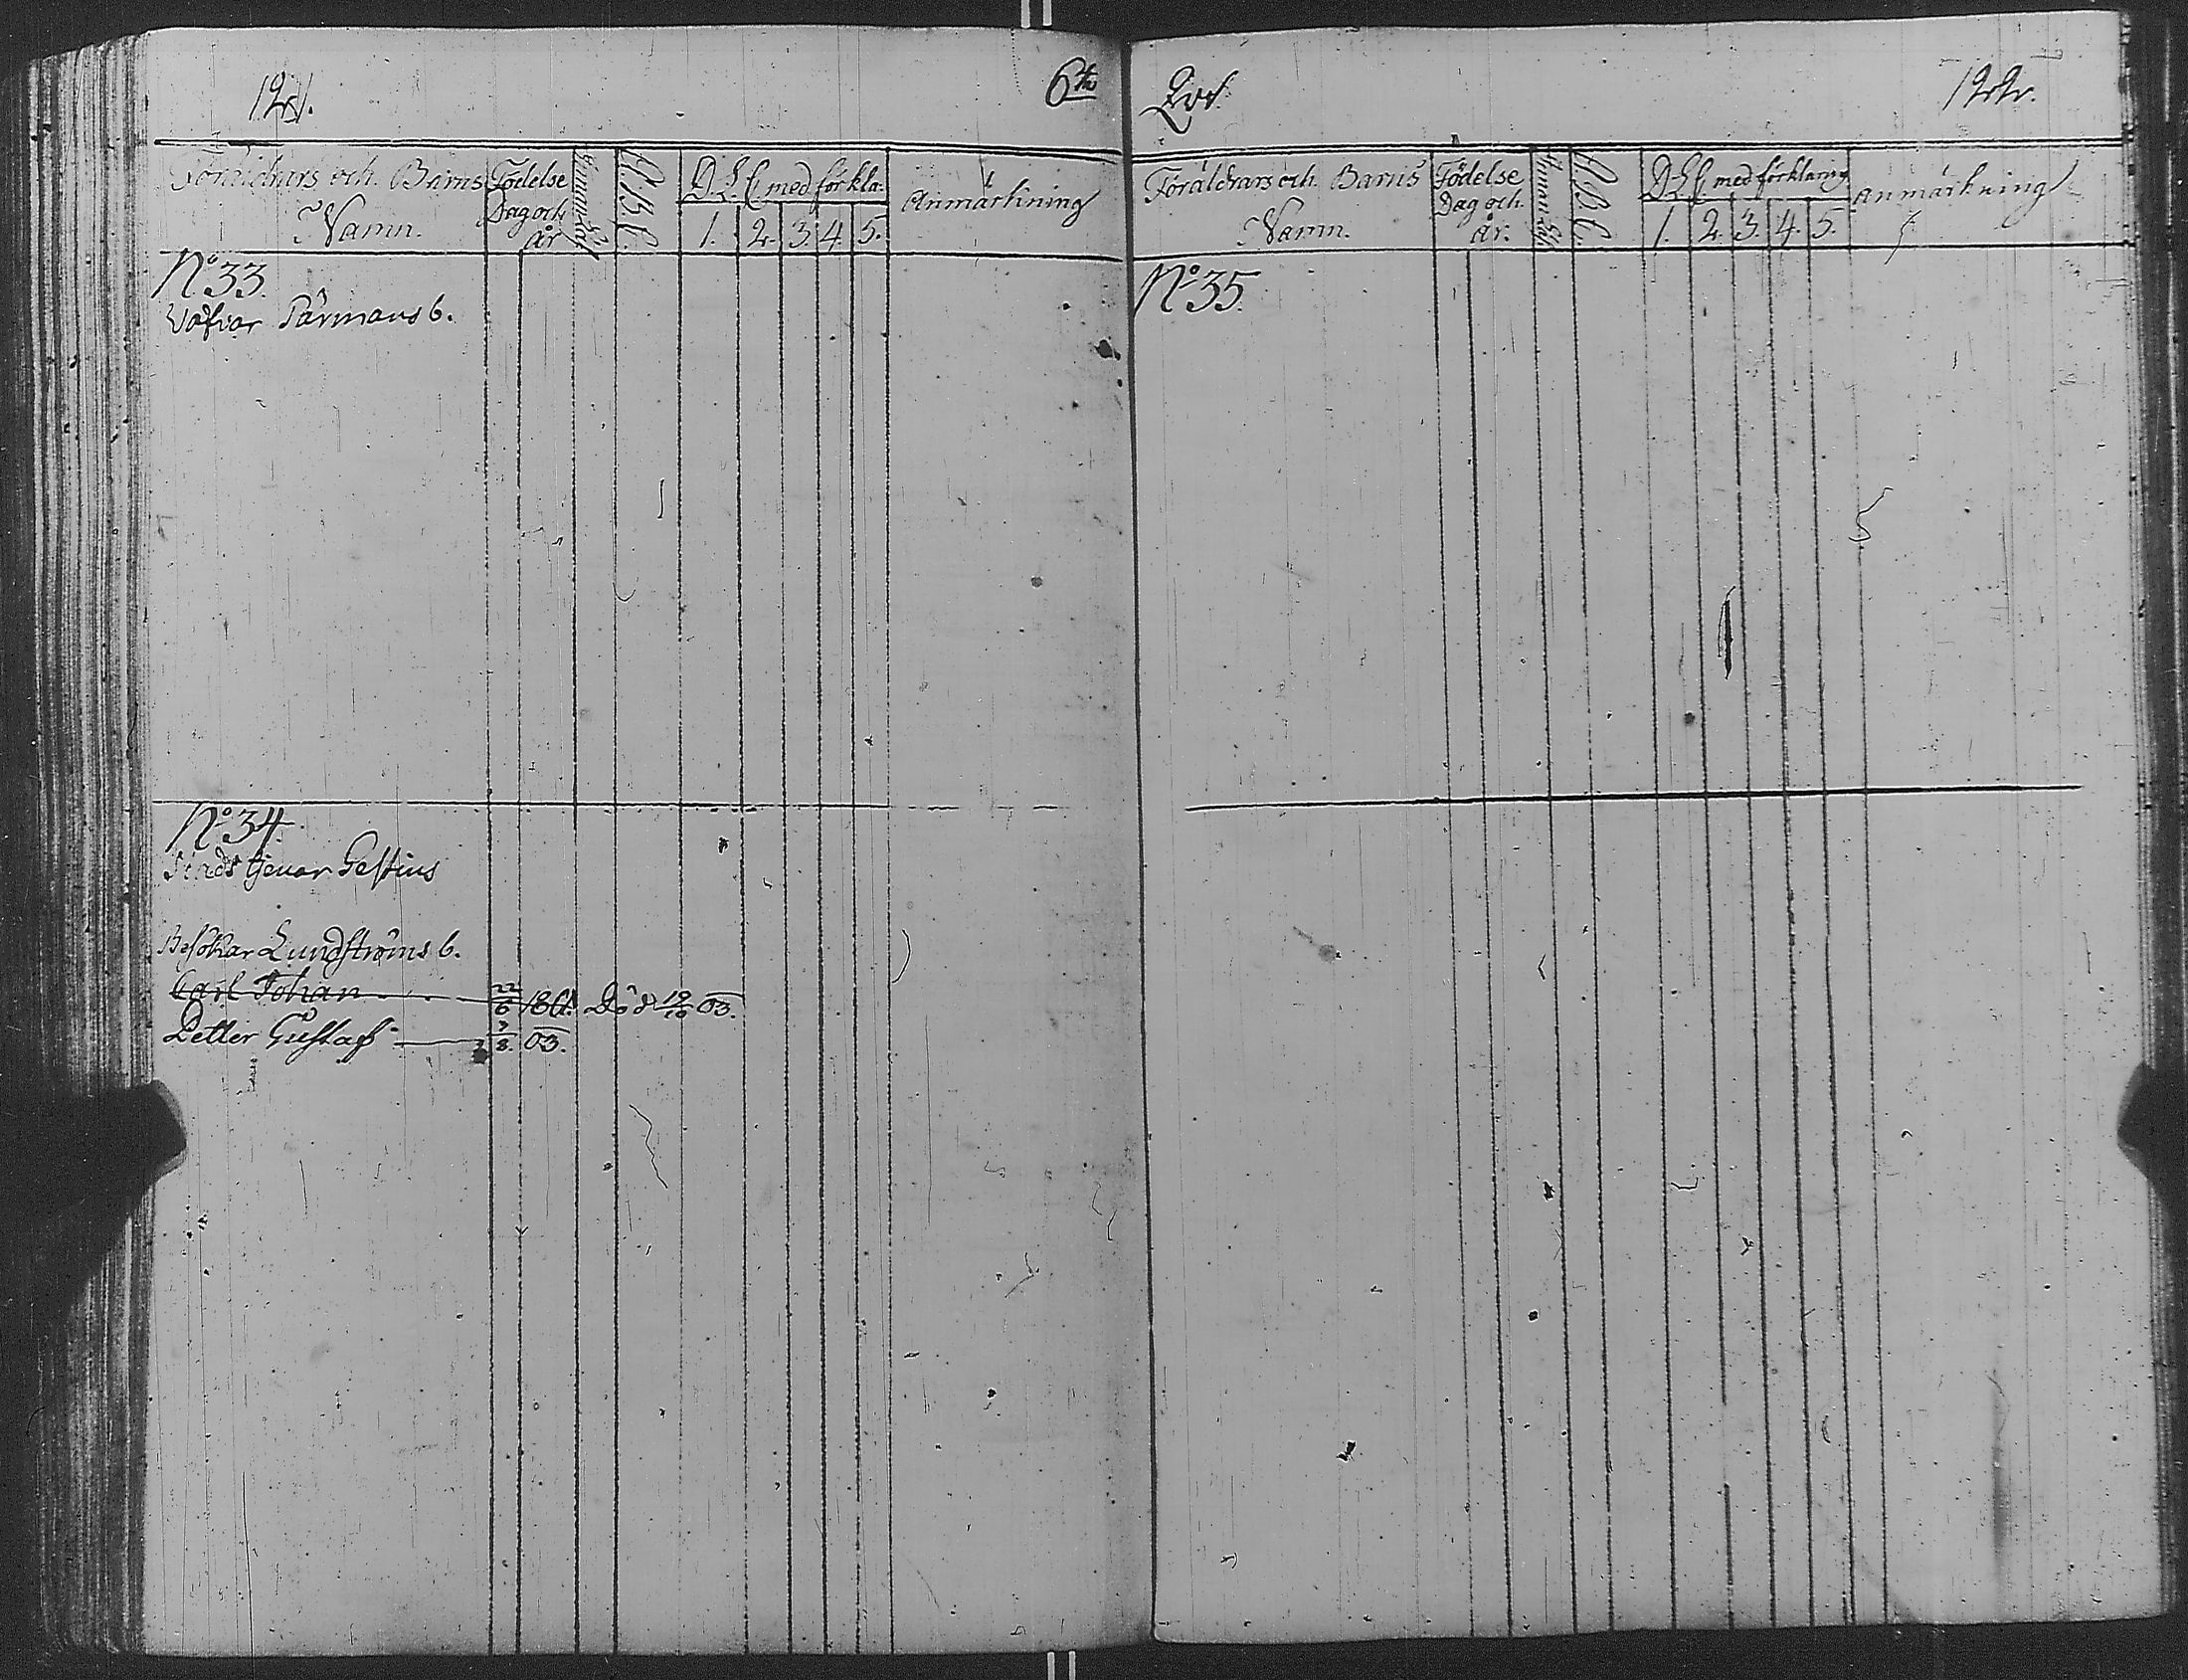 121.
6te
Föräldrars och Barns
Namn.
Födelse
Dag och
år
A.B.C.
D.L.C. med förkla:
1. 2. 3. 4. 5.
Anmärkning
No 33.
Påvmans b.
No 34.
Stads tjenar Gestius
Besökar Lundströms b.
Carl Johan 22/6 1801. Död 19/10 03.
Petter Gustaf 7/8. 03.
Qvr.
122.
Föräldrars och Barns
Namn.
Födelse
Dag och
år.
A.B.C.
D.L.C. med förklaring
1. 2. 3. 4. 5.
Anmärkning
No 35.